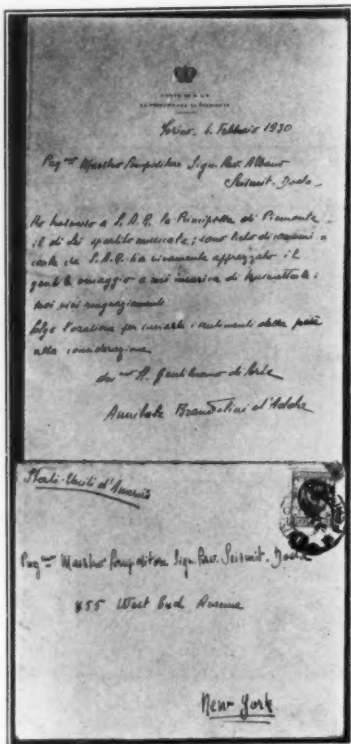 CORTE DI S. A. R.
LA PRINCIPESSA DI PIEMONTE
Torino, 6 Febbraio 1930
Maestro Compositore Sign. Cav. Albano
Seismit-Doda
Ho trasmesso a S. A. R. la Principessa di Piemonte
il di Lei spartito musicale; sono lieto di comuni-
carle che S. A. R. ha vivamente apprezzato il
gentile omaggio e mi incarica di trasmetterle i
suoi vivi ringraziamenti
Colgo l'occasione per inviarle i sentimenti della più
alta considerazione
Il Gentiluomo di Corte
Annibale Brandolini d'Adda
Stati-Uniti d'America
Maestro Compositore Sign. Cav. Seismit-Doda
855 West End Avenue
New York